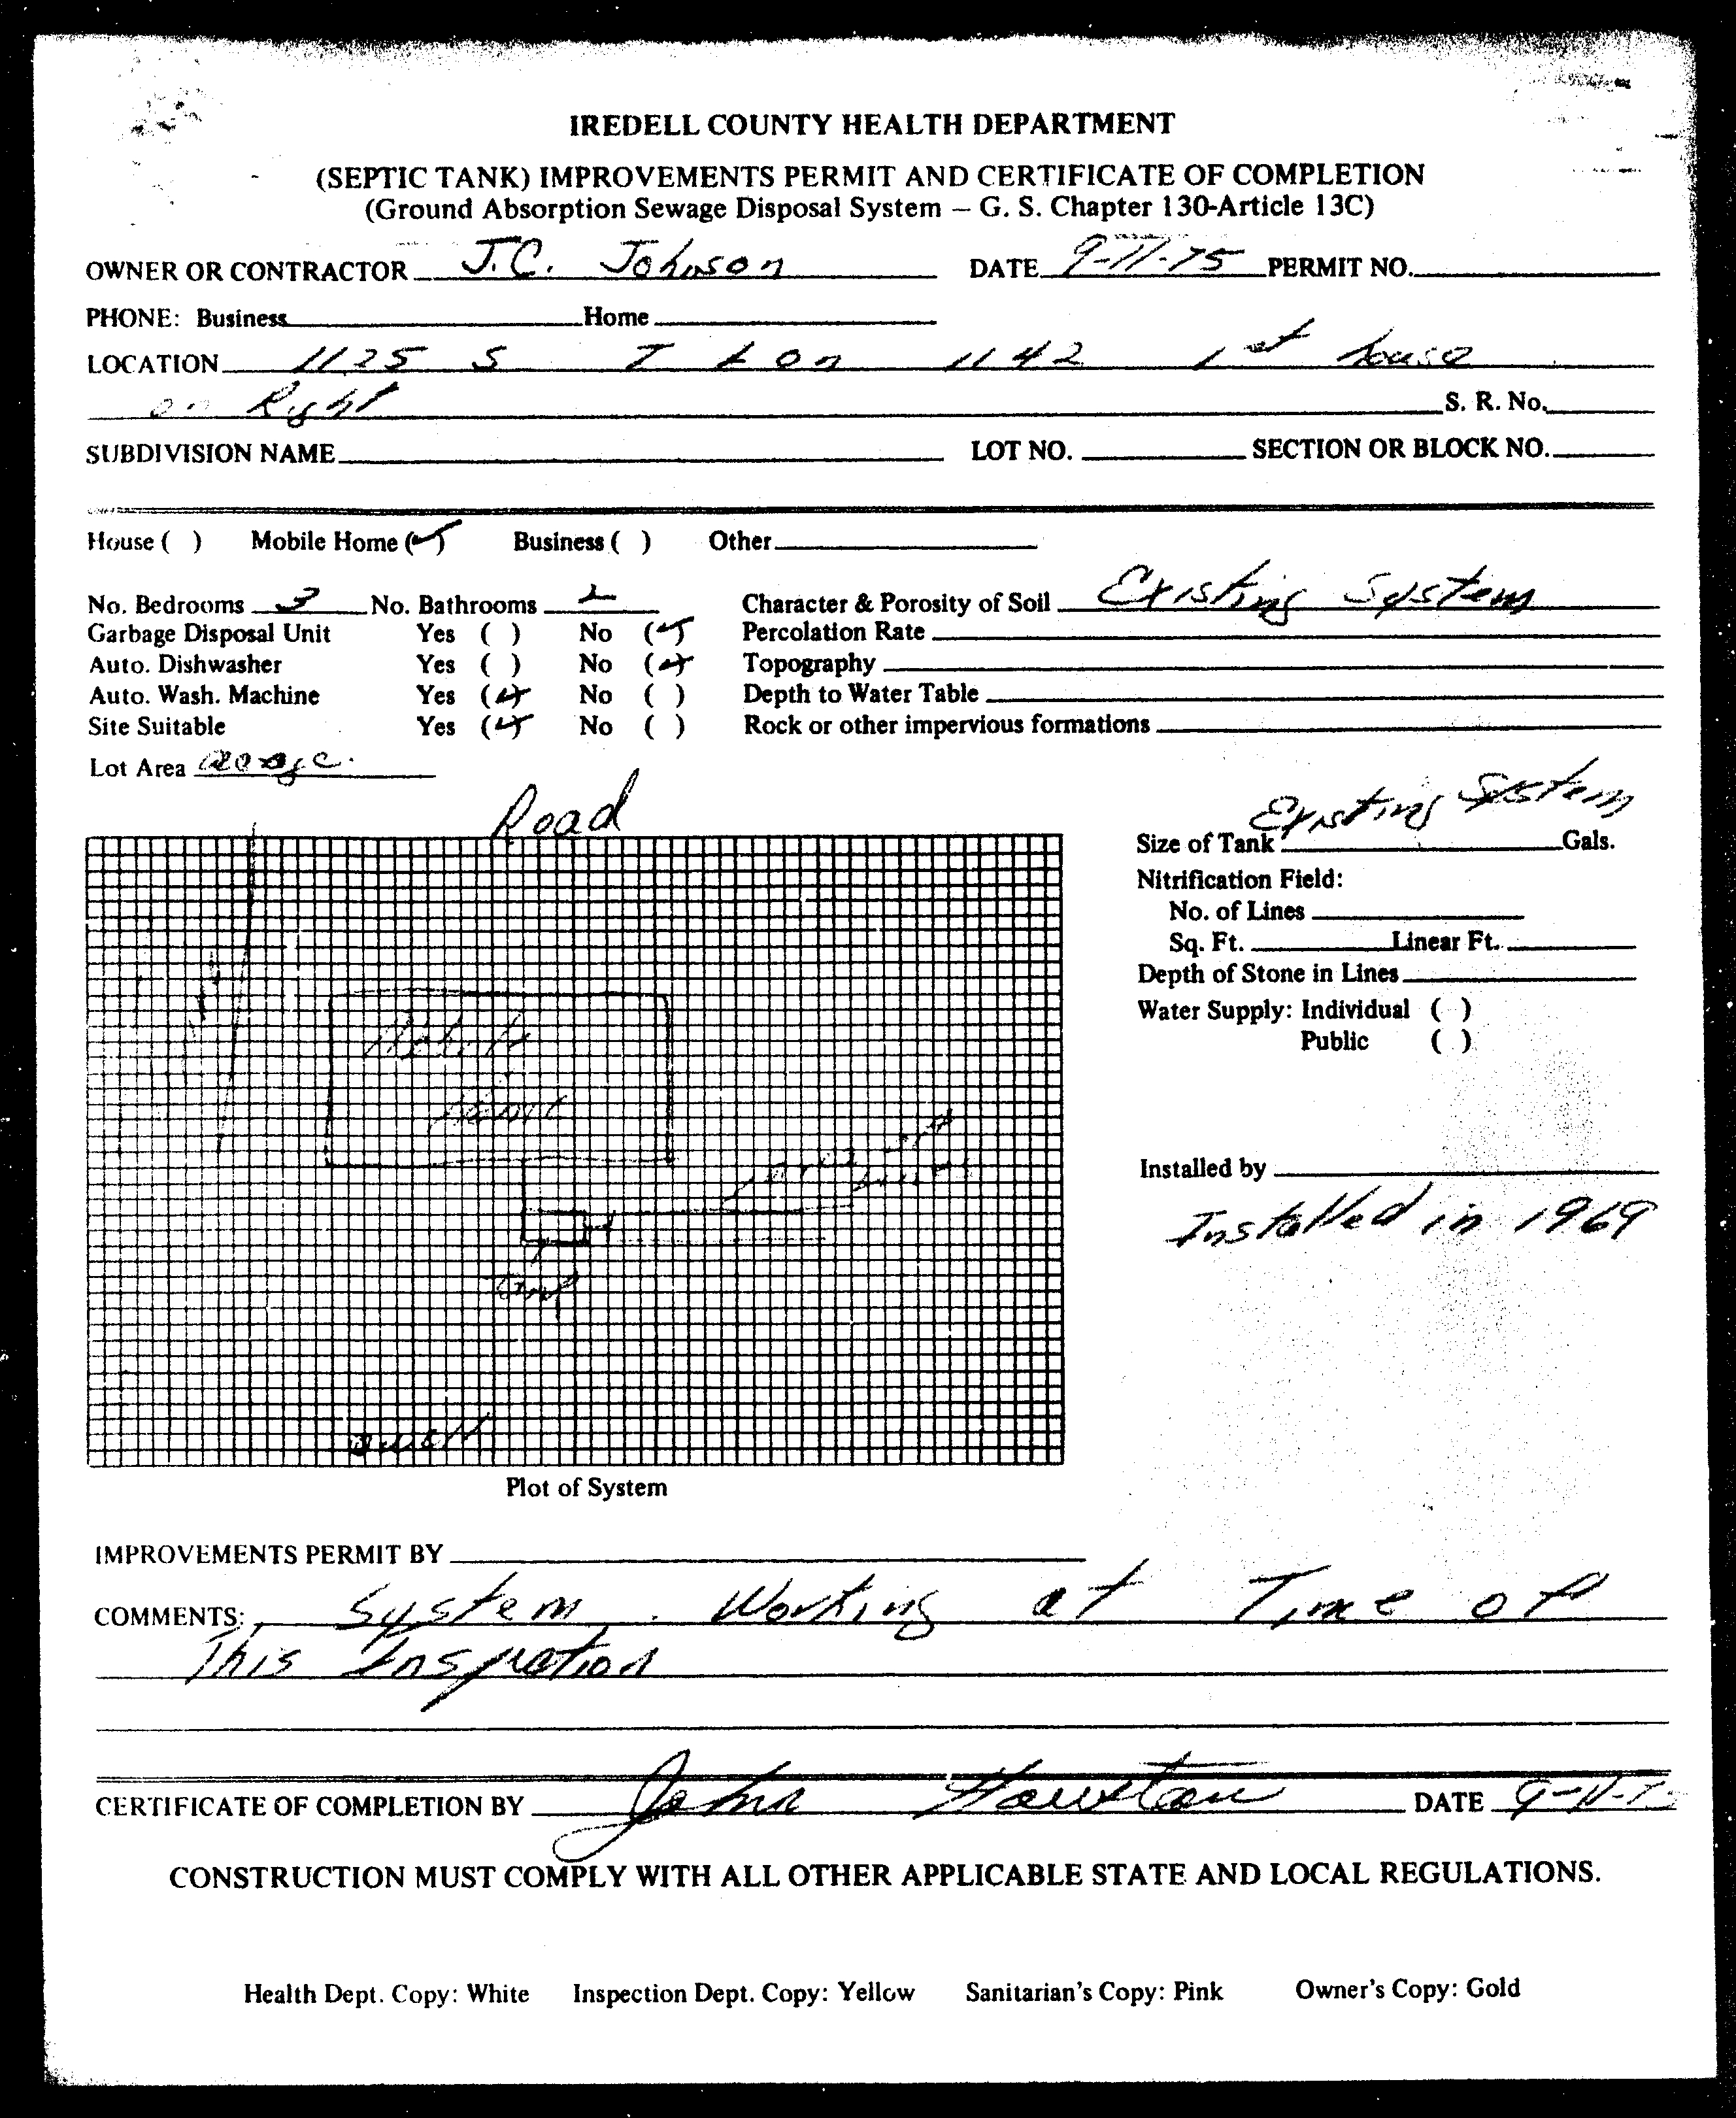 IREDELL COUNTY HEALTH DEPARTMENT
(SEPTIC TANK) IMPROVEMENTS PERMIT AND CERTIFICATE OF COMPLETION
(Ground Absorption Sewage Disposal System – G. S. Chapter 130-Article 13C)
OWNER OR CONTRACTOR J.C. Johnson DATE 9-11-75 PERMIT NO.
PHONE: Business Home
LOCATION 1125 S on 1142 1st house
on Right S. R. No.
SUBDIVISION NAME LOT NO. SECTION OR BLOCK NO.
House ( ) Mobile Home (✓) Business ( ) Other
No. Bedrooms 3 No. Bathrooms 2 Character & Porosity of Soil Existing System
Garbage Disposal Unit Yes ( ) No (✓) Percolation Rate
Auto. Dishwasher Yes ( ) No (✓) Topography
Auto. Wash. Machine Yes (✓) No ( ) Depth to Water Table
Site Suitable Yes (✓) No ( ) Rock or other impervious formations
Lot Area
Road
Existing System
Size of Tank Gals.
Nitrification Field:
No. of Lines
Sq. Ft. Linear Ft.
Depth of Stone in Lines
Water Supply: Individual ( )
Public ( )
Mobile
Home
Installed by
Installed in 1969
Plot of System
IMPROVEMENTS PERMIT BY
COMMENTS: System Working at Time of
This Inspection
CERTIFICATE OF COMPLETION BY John DATE
CONSTRUCTION MUST COMPLY WITH ALL OTHER APPLICABLE STATE AND LOCAL REGULATIONS.
Health Dept. Copy: White Inspection Dept. Copy: Yellow Sanitarian's Copy: Pink Owner's Copy: Gold